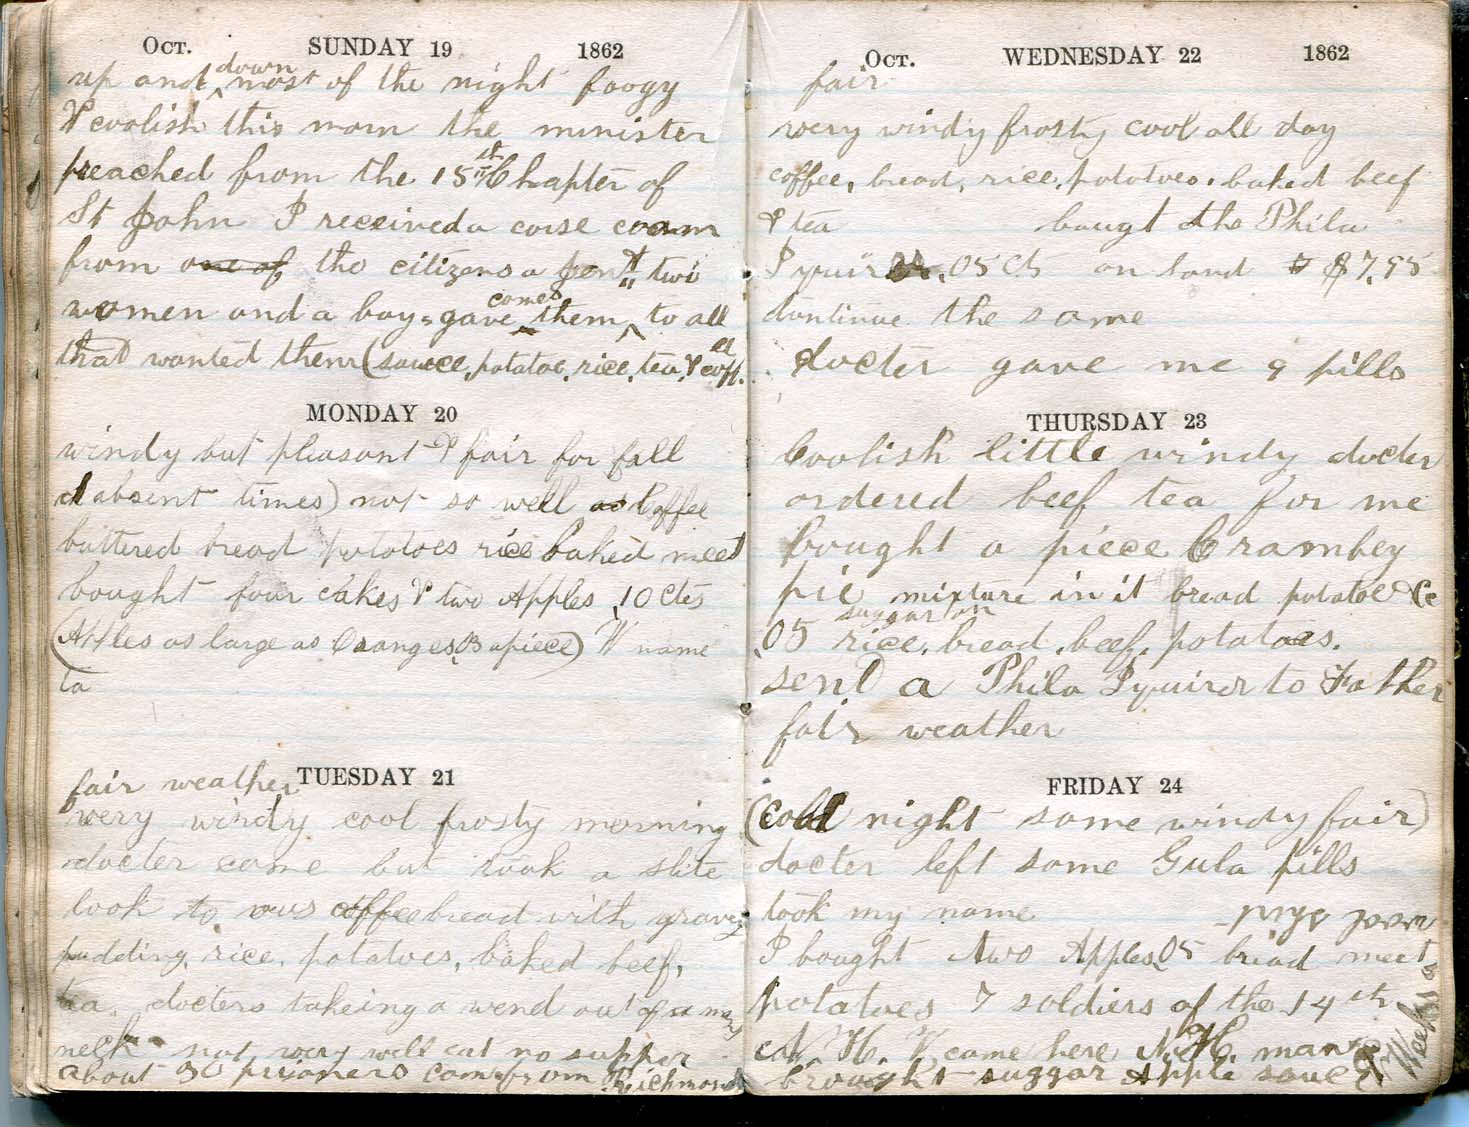 Oct. SUNDAY 19 1862
up and down most of the night foogy
& coolish this morn the minister
preached from the 15th Chapter of
St John I received a corse
from one of the citizens a two
women and a boy gave them to all
that wanted them (sauce, potatoe, rice, tea, & coff.ee
MONDAY 20
windy but pleasant & fair for fall
absent times) not so well as Coffee
buttered bread potatoes rice baked meet
bought four cakes & two Apples ,10 cts
(Apples as large as Oranges, 03 apiece) W name
ta
TUESDAY 21
fair weather
wery windy cool frosty morning
docter came but took a slite
look to ous coffee bread with gravey
pudding, rice, potatoes, baked beef,
tea. docters takeing a wend out of a man
neck not wery well eat no supper
about 30 prisoners came from Richmond
Oct. WEDNESDAY 22 1862
fair
wery windy frosty cool all day
coffee, bread, rice, potatoes, baked beef
& tea bougt the Phila
,05 Ct on hand $7,95
continue the same
docter gave me 9 pills
THURSDAY 23
Coolish little windy docter
ordered beef tea for me
bought a piece Crambey
pie mixture in it bread potatoe &c
,05 rice, bread, beef, potatoes.
suggar on
sent a Phila Iquirer to Father
fair weather
FRIDAY 24
(cold night some windy fair)
docter left some Gula pills
took my name
I bought two Apples,05 bread meet
potatoes 7 soldiers of the 14th
N. H. V. came here N.H. man
brought suggar Apple sauce